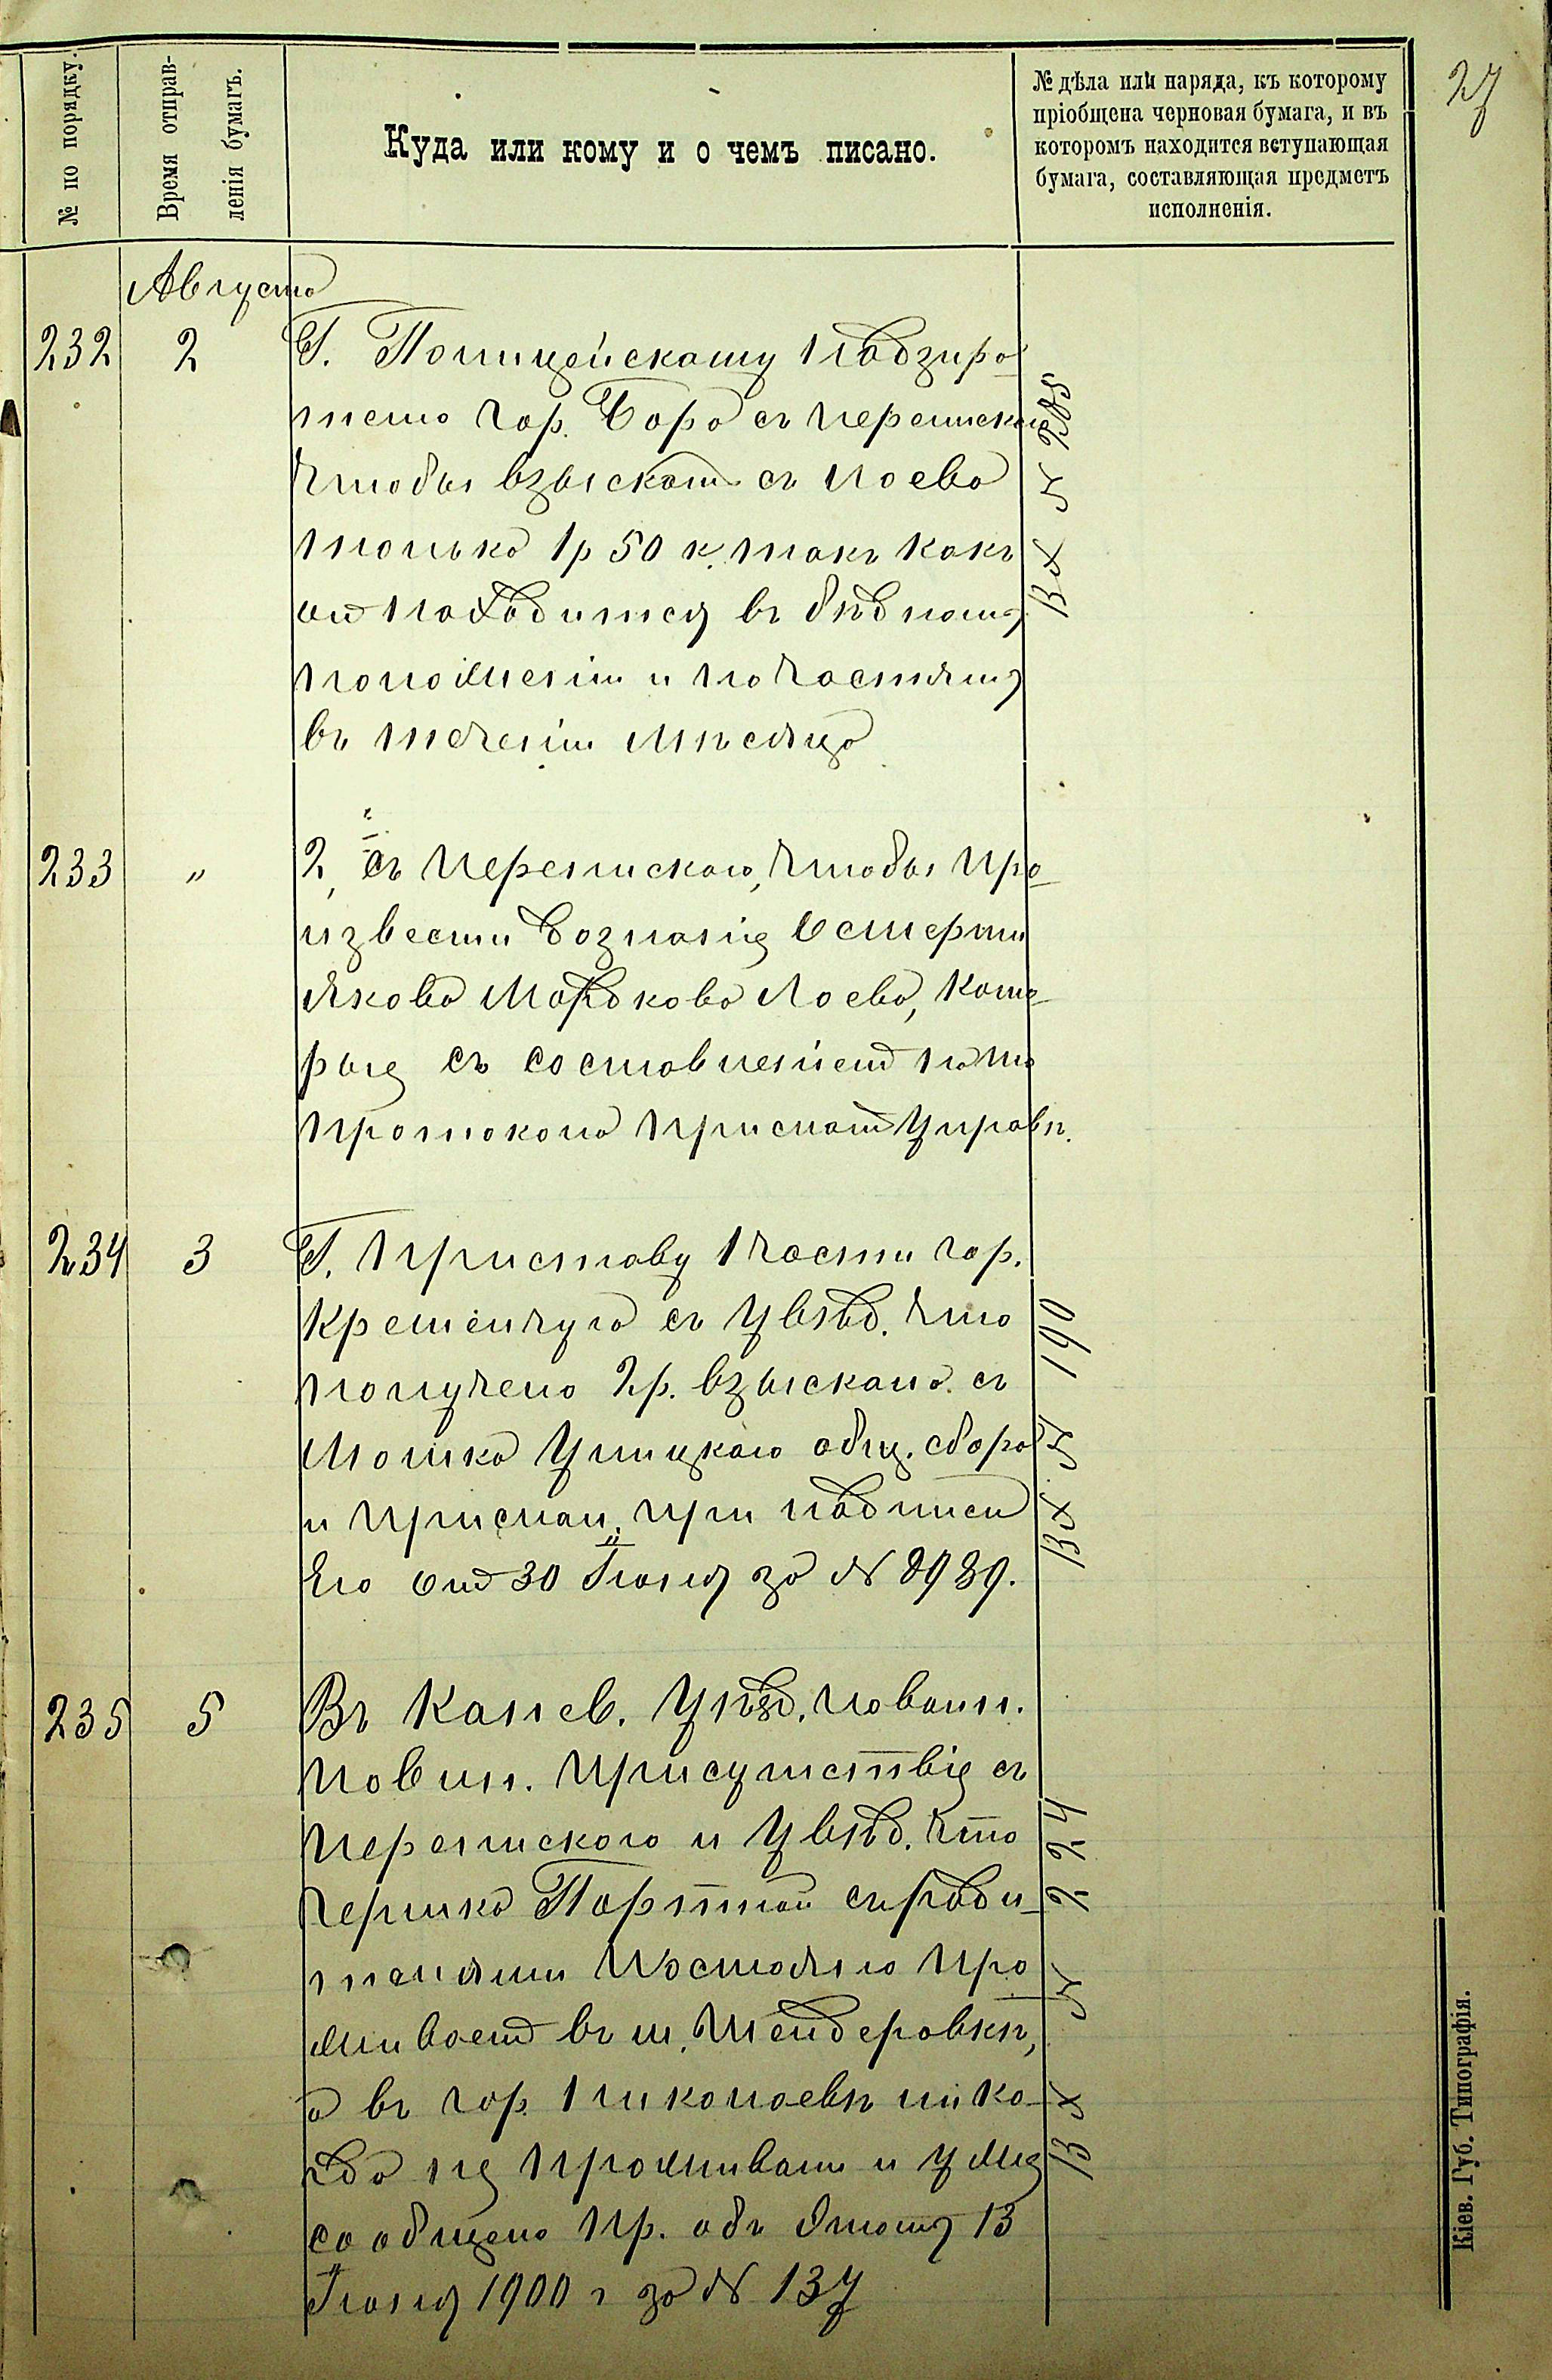 27
№ по порядку.
Время отправ-
ленія бумагъ.
Куда или кому и о чемъ писано.
№ дѣла или наряда, къ которому
пріобщена черновая бумага, и въ
которомъ находится вступающая
бумага, составляющая предметъ
исполненія.
Августа
232 2 Г. Полицейскому Надзира
телю гор. с перепиской
чтобы взыскать съ Лоева
только 1р 50 к. такъ какъ
онъ находится въ бѣдномъ
положеніи и по частямъ
въ теченіи мѣсяца
Вх № 288
233 " 2, съ перепискою, чтобы про-
извести дознаніе о смерти
Якова Мордкова Лоева, кото-
рые съ составленіемъ на то
протокола прислать Управѣ.
234 3 Г. Приставу 1 части гор.
Кременчуга съ увѣд. что
получено 2р. взыскано съ
Мошка Улицкаго общ. сбора
и прислан. при надписи
Его отъ 30 Іюля за № 8989.
Вх № 190
235 5 Въ Канев. Уѣзд. по воин.
повин. присутствіе съ
перепискою и увѣд. что
Гершко Портной съ роди-
телями постоянно про
живаетъ въ м. Шендеровкѣ,
а въ гор. Николаевѣ нико-
гда не проживали и уже
сообщено пр. объ этомъ 13
Іюля 1900 г за № 137
Вх № 224
Кіев. Губ. Типографія.